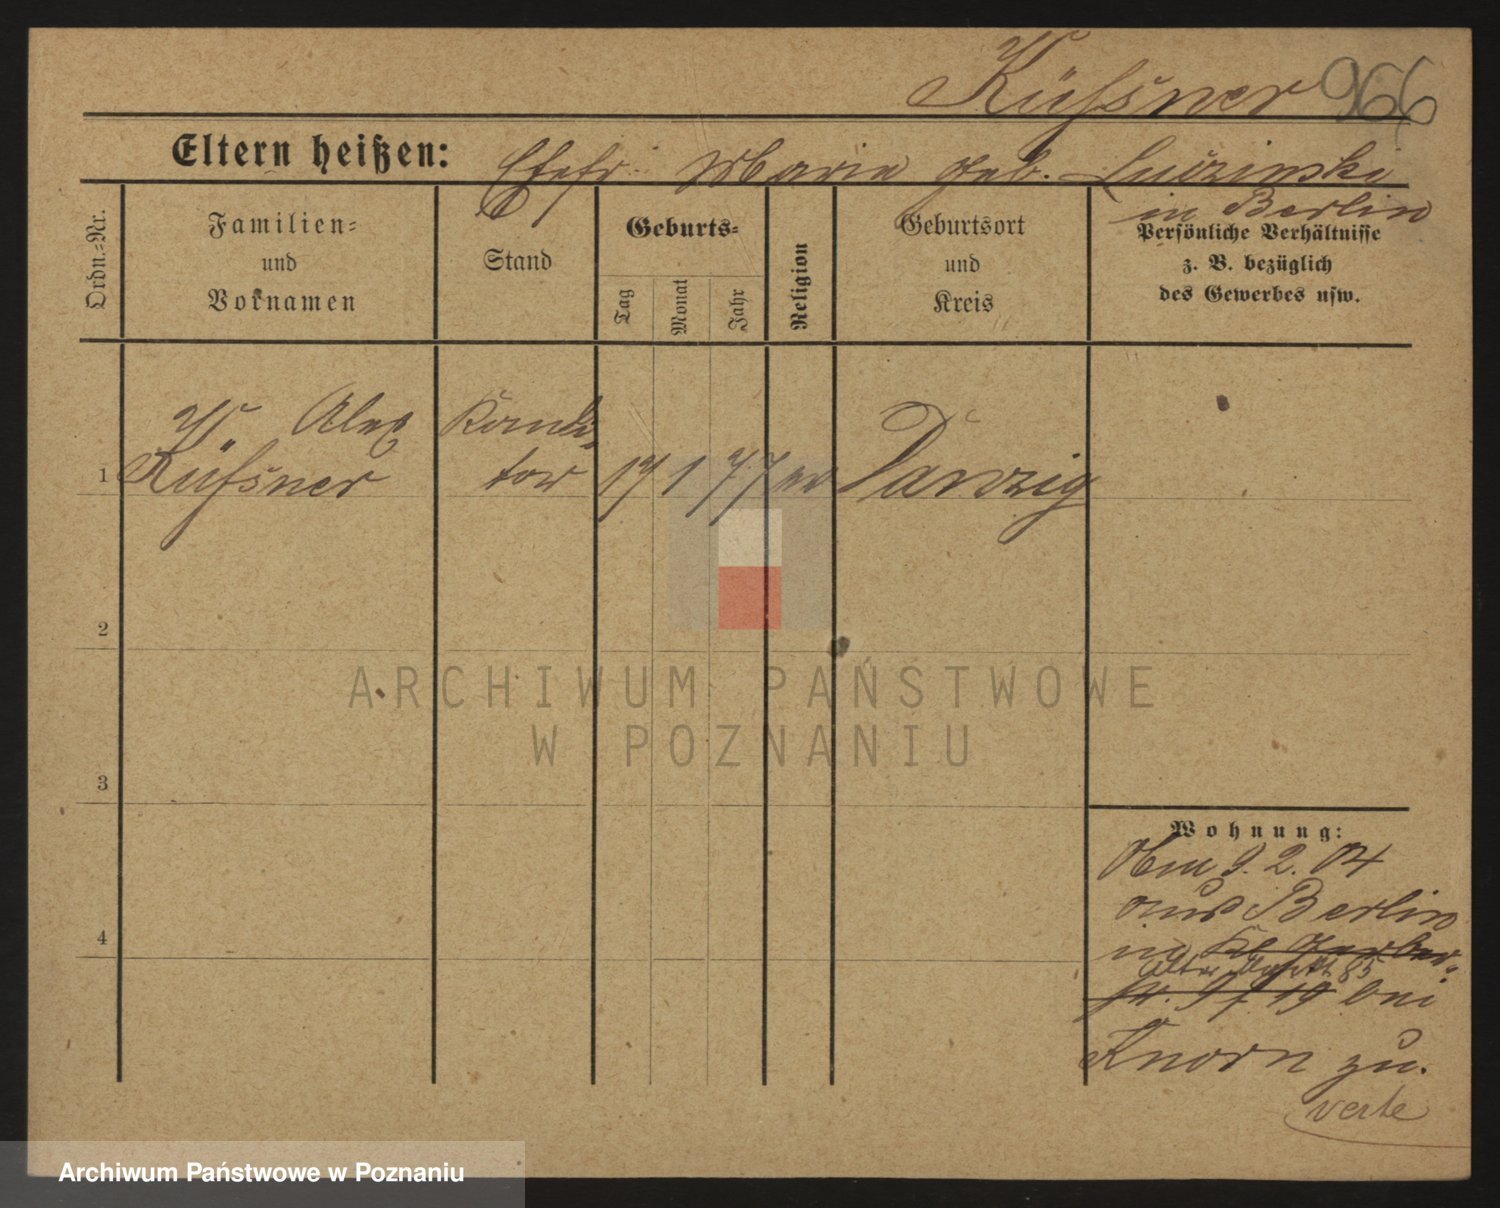 Küfsner 966
Eltern heißen: Ehefr. Maria geb. Ludzinski
in Berlin
Ordn.-Nr.
Familien-
und
Vornamen
Stand
Geburts-
Tag
Monat
Jahr
Religion
Geburtsort
und
Kreis
Persönliche Verhältnisse
z. B. bezüglich
des Gewerbes usw.
Alex Kondi-
1 Küfsner tor 17 1 77 ev Danzig
2
ARCHIWUM PAŃSTWOWE
W POZNANIU
3
Wohnung:
Am 9. 2. 04
aus Berlin
4
in Kl Gerber-
Alter Markt 85
str. 19 bei
Knorn zu.
verte
Archiwum Państwowe w Poznaniu